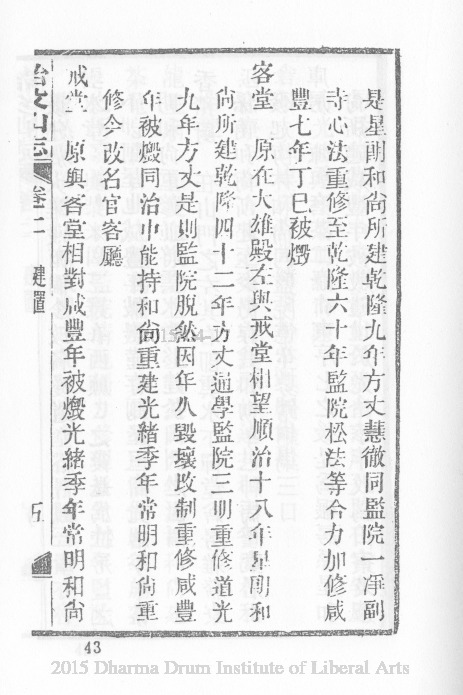 是星朗和尚所建乾隆九年方丈慧徹同監院一淨副
寺心法重修至乾隆六十年監院松法等合力加修咸
豐七年丁巳被燬
客堂　原在大雄殿左與戒堂相望順治十八年星朗和
尚所建乾隆四十二年方丈通學監院三明重修道光
九年方丈是則監院脫然因年久毀壞改制重修咸豐
年被燬同治中能持和尚重建光緒季年常明和尚重
修今改名官客廳
戒堂　原與客堂相對咸豐年被燬光緒季年常明和尚
卷二　建置　五
43
2015 Dharma Drum Institute of Liberal Arts